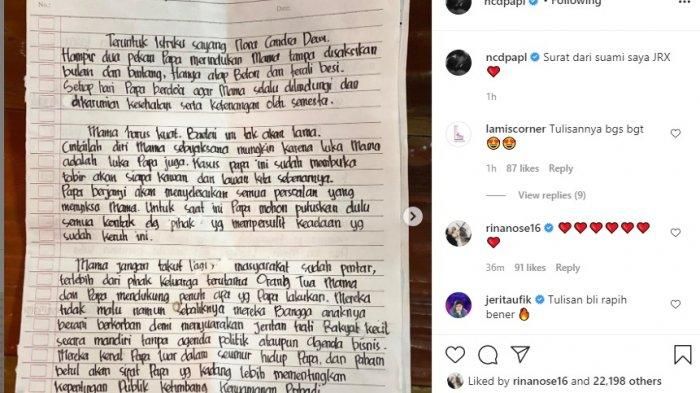 No.:
Date:
Teruntuk Istriku sayang Nora Candra Dewi.
Hampir dua pekan Papa merindukan Mama tanpa disaksikan
bulan dan bintang. Hanya atap Beton dan terali besi.
Setiap hari Papa berdo'a agar Mama selalu dilindungi dan
dikaruniai kesehatan serta ketenangan oleh semesta.
Mama harus kuat. Badai ini tak akan lama.
Cintailah diri Mama sebijaksana mungkin karena luka Mama
adalah luka Papa juga. Kasus papa ini sudah membuka
tabir akan siapa kawan dan lawan kita sebenarnya.
Papa berjanji akan menyelesaikan semua persoalan yang
menyiksa Mama. Untuk saat ini Papa mohon putuskan dulu
semua kontak dg pihak yg mempersulit keadaan yg
sudah keruh ini.
Mama jangan takut lagi, masyarakat sudah pintar,
terlebih dari pihak keluarga terutama Orang Tua Mama
dan Papa mendukung penuh apa yg Papa lakukan. Mereka
tidak malu namun sebaliknya mereka Bangga anaknya
berani berkorban demi menyuarakan jeritan hati Rakyat kecil
secara mandiri tanpa agenda politik ataupun agenda bisnis.
Mereka kenal Papa luar dalam seumur hidup Papa, dan paham
betul akan sifat Papa yg kadang lebih mementingkan
kepentingan Publik ketimbang Kenyamanan Pribadi
ncdpapl • Following
ncdpapl Surat dari suami saya JRX
❤️
1h
lamiscorner Tulisannya bgs bgt
😍😍
1h 87 likes Reply
View replies (9)
rinanose16 ❤️❤️❤️❤️❤️❤️
❤️
36m 91 likes Reply
jeritaufik Tulisan bli rapih
bener 🔥
Liked by rinanose16 and 22,198 others